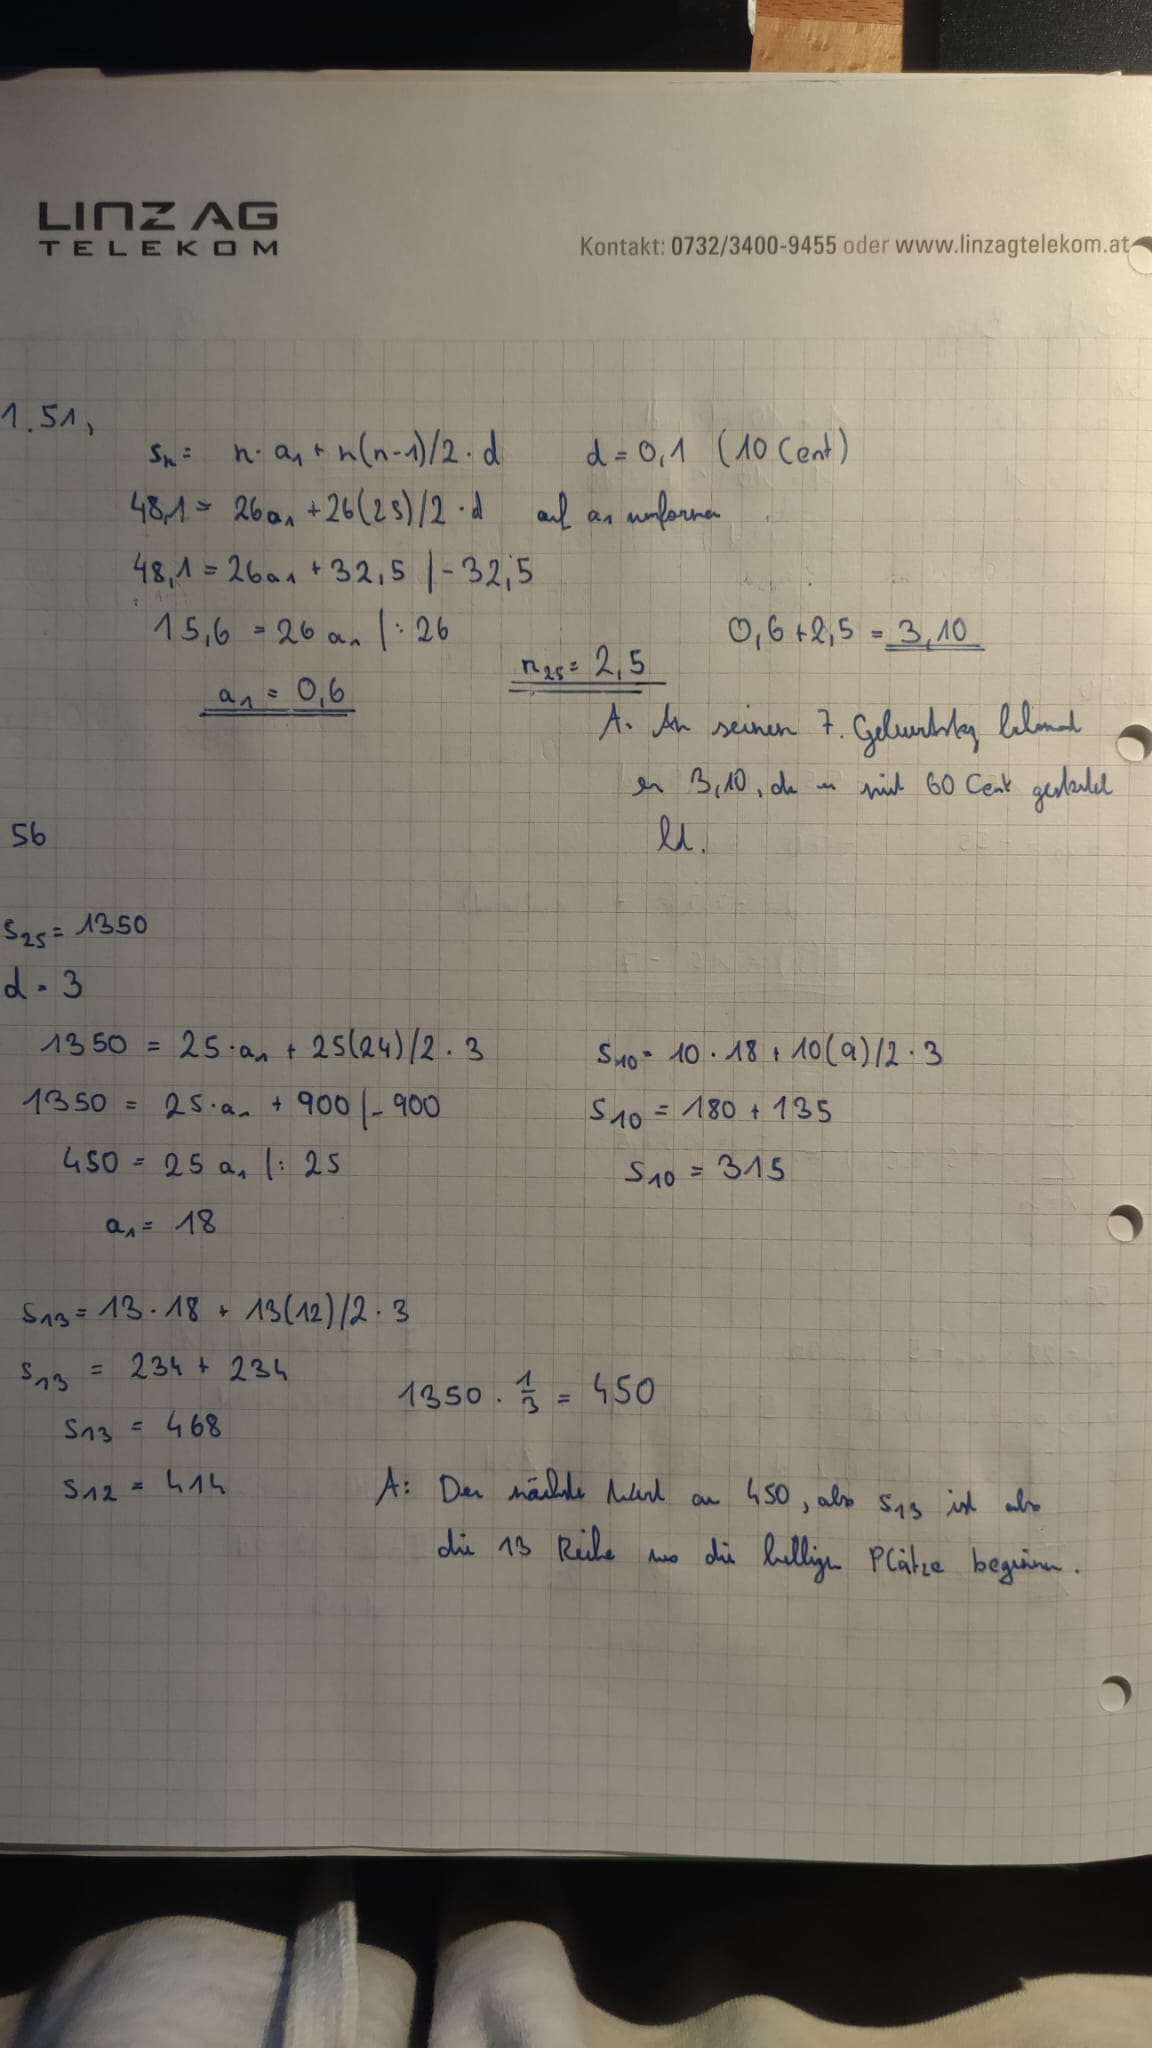 LINZ AG
TELEKOM
Kontakt: 0732/3400-9455 oder www.linzagtelekom.at
1.51,
sn = n · a1 + n(n-1)/2 · d d = 0,1 (10 Cent)
48,1 = 26a1 + 26(25)/2 · d auf a1 umformen
48,1 = 26a1 + 32,5 |- 32,5
15,6 = 26 a1 |: 26
0,6 + 2,5 = 3,10
n25 = 2,5
a1 = 0,6
A. An seinen 7. Geburtstag bekommt
er 3,10, da er mit 60 Cent gestartet
ist.
56
s25 = 1350
d = 3
1350 = 25 · a1 + 25(24)/2 · 3
1350 = 25 · a1 + 900 |- 900
450 = 25 a1 |: 25
a1 = 18
s10 = 10 · 18 + 10(9)/2 · 3
s10 = 180 + 135
s10 = 315
s13 = 13 · 18 + 13(12)/2 · 3
s13 = 234 + 234
s13 = 468
s12 = 414
1350 · 1/3 = 450
A: Der nächste Wert an 450, also s13 ist also
die 13 Reihe wo die billigen Plätze beginnen.